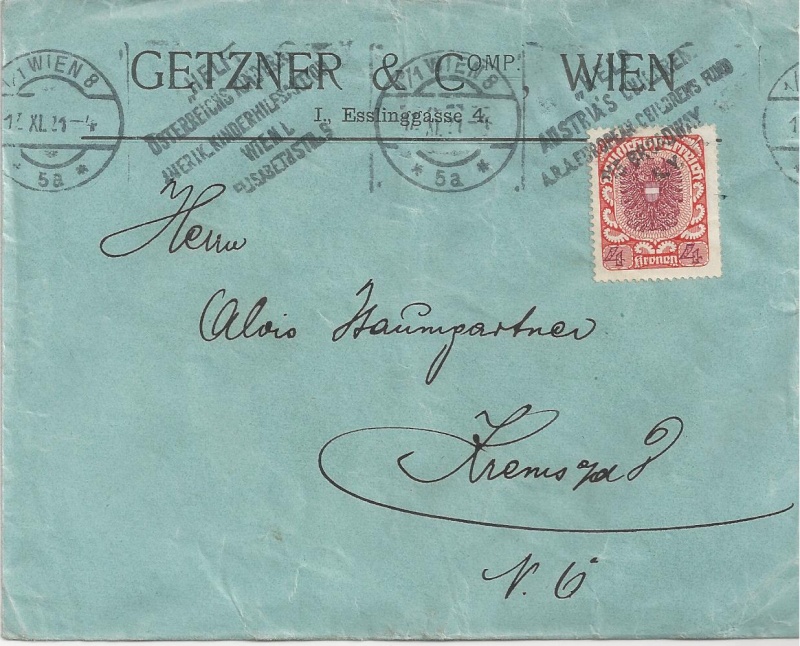 GETZNER & COMP., WIEN
I., Esslinggasse 4.
1/1 WIEN 8
XI. 21-4
* 5a *
"HELFT
ÖSTERREICHS
AMERIK. KINDERHILFS
WIEN I.
ELISABETHSTR. 9
1/1 WIEN 8
* 5a *
AUSTRIA'S CHILDREN
A.R.A. EUROPEAN CHILDREN'S FUND
BROADWAY
4 Kronen 4
Herrn
Alois Baumgartner
Krems a/d D
N. Ö